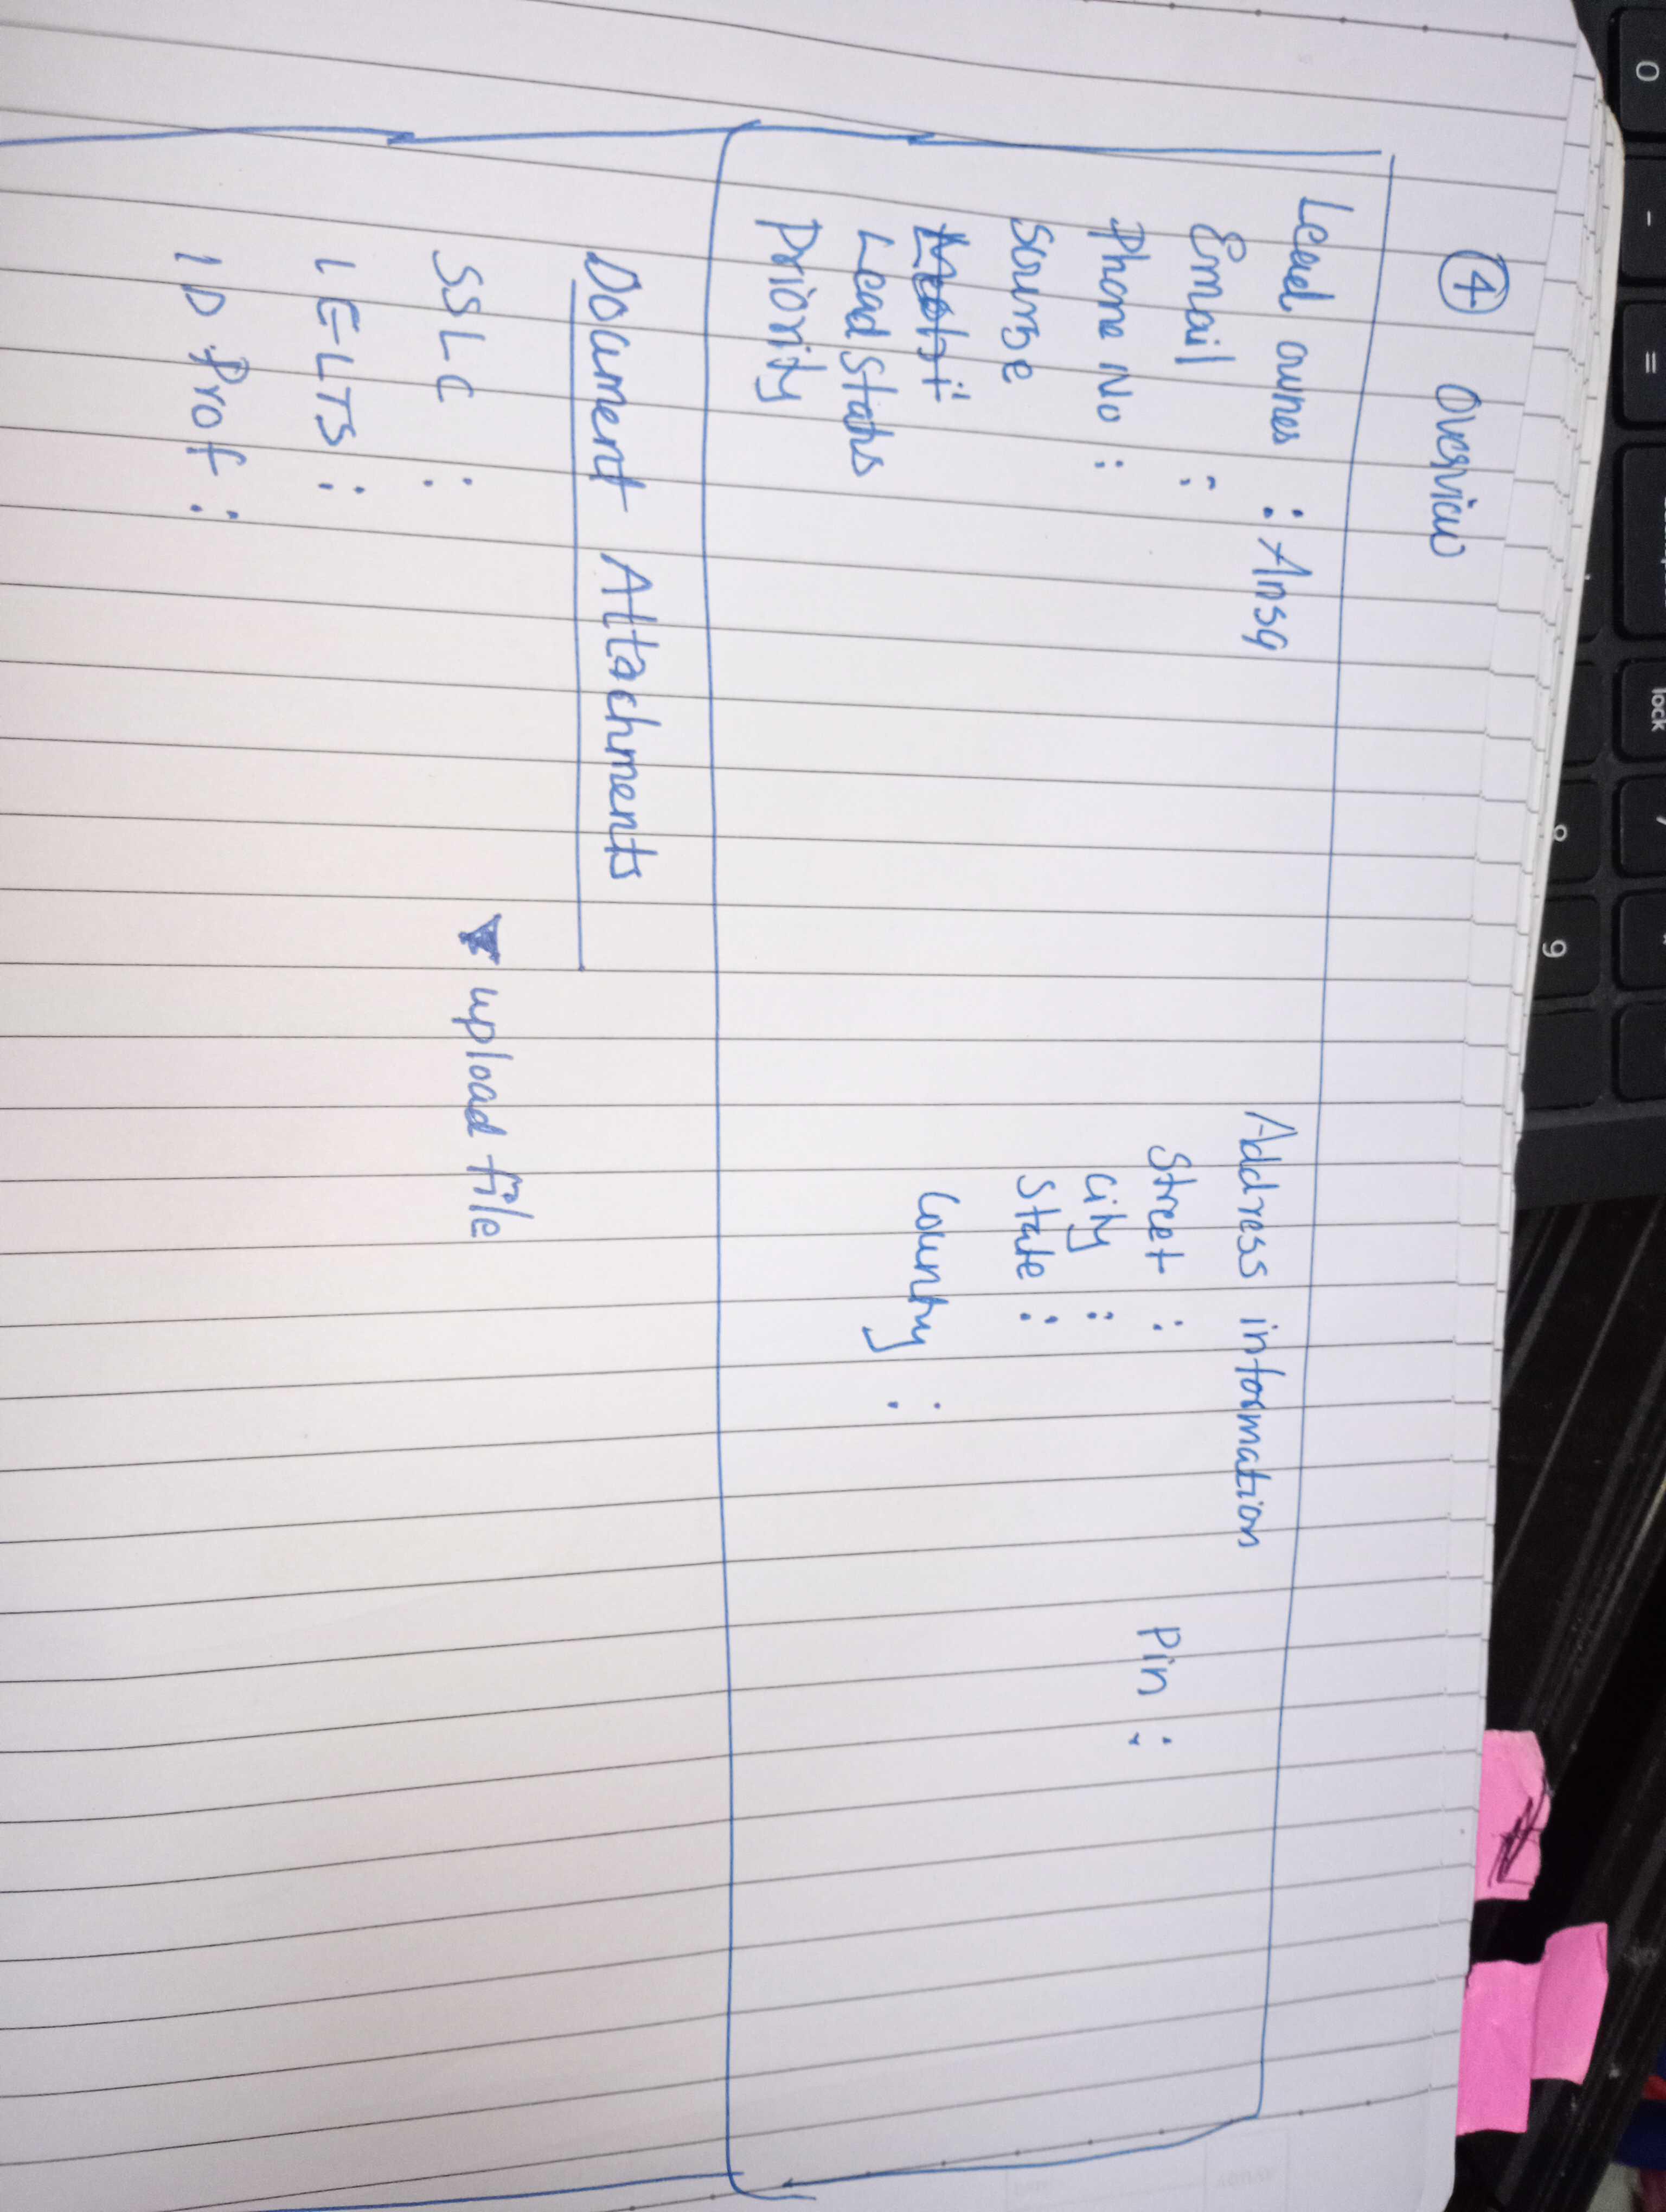 ④ Overview
Lead owner : Ansa
Email :
Phone No :
Sourse
Lead Status
Priority
Address information
Street :
Pin :
City :
State :
Country :
Document Attachments
upload file
SSLC :
IELTS :
ID Prof :
0
-
=
lock
7
8
9